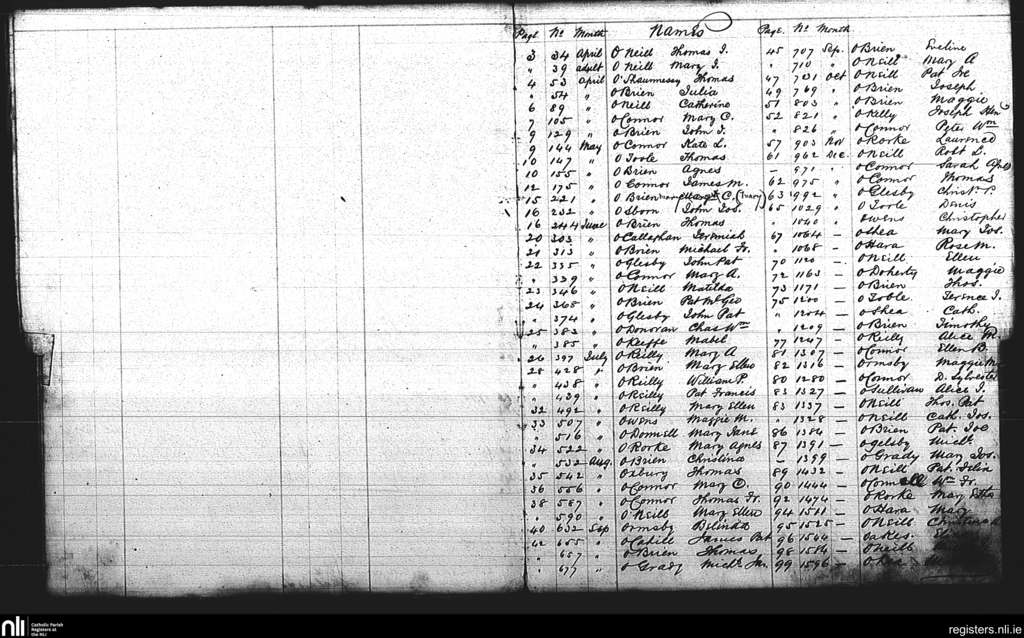 Page No Month Names Page. No Month
3 34 April O'Neill Thomas J. 45 707 Sep. O'Brien Eveline
" 39 adult O'Neill Mary J. " 710 " O'Neill Mary A
4 53 April O'Shaunnessy Thomas 47 731 Oct O'Neill Pat
" 54 " O'Brien Julia 49 769 " O'Brien Joseph
6 89 " O'Neill Catherine 51 803 " O'Brien Maggie
7 105 " O'Connor Mary C. 52 821 " O'Kelly Joseph
9 129 " O'Brien John J. " 826 " O'Connor Peter Wm
9 144 May O'Connor Kate L. 57 903 Nov O'Rorke Laurence
10 147 " O'Toole Thomas 61 962 Dec. O'Neill Robt L.
10 155 " O'Brien Agnes — 971 " O'Connor Sarah Agnes
12 175 " O'Connor James M. 62 975 " O'Connor Thomas
15 221 " O'Brien Margt C. (Mary) 63 992 " O'Glesby Christr P.
16 232 " Osborn John Jos. 65 1029 " O'Toole Denis
16 244 June O'Brien Thomas " 1040 " Owens Christopher
20 303 " O'Callaghan Jeremiah 67 1064 — O'Shea Mary Jos.
21 313 " O'Brien Michael Fr. " 1068 — O'Hara Rose M.
22 335 " O'Glesby John Pat 70 1120 — O'Neill Ellen
" 339 " O'Connor Mary A. 72 1163 — O'Doherty Maggie
23 346 " O'Neill Matilda 73 1171 — O'Brien Thos.
24 368 " O'Brien Pat 75 1200 — O'Toole Terence J.
" 374 " O'Glesby John Pat " 1204 — O'Shea Cath.
25 383 " O'Donovan Chas Wm " 1209 — O'Brien Timothy
" 385 " O'Keeffe Mabel 77 1247 — O'Reilly Alice M.
26 397 July O'Reilly Mary A 81 1307 — O'Connor Ellen B.
28 428 " O'Brien Mary Ellen 82 1316 — Ormsby Maggie M.
" 438 " O'Reilly William P. 80 1280 — O'Connor D. Sylvester
" 439 " O'Reilly Pat Francis 83 1327 — O'Sullivan Alice J.
32 492 " O'Reilly Mary Ellen 83 1337 — O'Neill Thos. Pat
33 507 " Owens Maggie M. " 1328 — O'Neill Cath. Jos.
" 516 " O'Donnell Mary Jane 86 1384 — O'Brien Pat. Jos
34 522 " O'Rorke Mary Agnes 87 1391 — Ogelsby Michl.
" 532 Aug. O'Brien Christina — 1399 — O'Grady Mary Jos.
35 542 " Oxbury Thomas 89 1432 — O'Neill Pat.
36 556 " O'Connor Mary O. 90 1444 — O'Connell Wm Fr.
38 587 " O'Connor Thomas Fr. 92 1474 — O'Rorke Mary
" 590 " O'Neill Mary Ellen 94 1511 — O'Hara Mary
40 632 Sep Ormsby Belinda 95 1525 — O'Neill Christina
42 655 " O'Cahill James Pat 96 1544 — Oakes.
" 657 " O'Brien Thomas 98 1584 — O'Neill
" 677 " O'Grady Michl. Jn. 99 1596 — O'Dea
nli Catholic Parish
Registers at
the NLI
registers.nli.ie